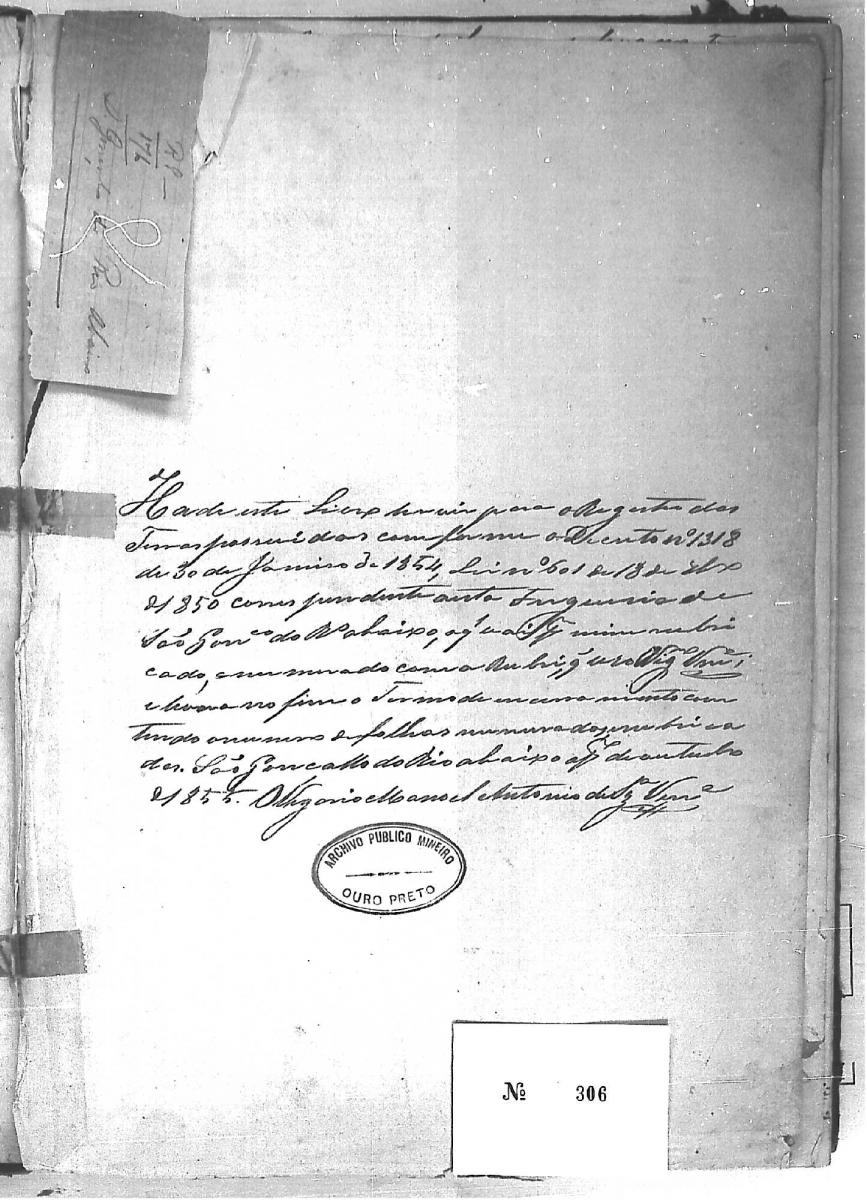 RP —
176
S. Gonçalo do Rio Abaixo
Hade este Livro servir para o Registro das
Terras possuidas conforme o Decreto nº 1318
de 30 de Janeiro de 1854, Lei nº 601 de 18 de
de 1850 correspondente a esta Freguesia de
São Gonc.º do R.º abaixo, o q.l vai p.r mim rubri
cado, e numerado com a Rubrica, q. uso
e leva no fim o Termo de encerramento con
tendo o numero de folhas numeradas, e rubrica
das. São Goncallo do Rio abaixo de outubro
de 1855. O Vigario Manoel Antonio de
ARCHIVO PUBLICO MINEIRO
OURO PRETO
Nº 306